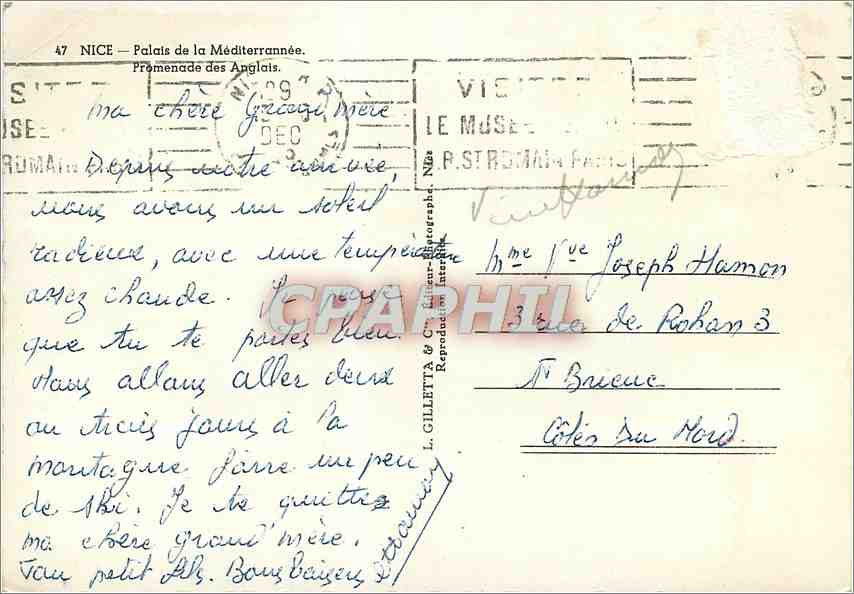 47 NICE — Palais de la Méditerrannée.
Promenade des Anglais.
29
DEC
VISITE
LE MUSÉE
R. ST ROMAIN PARIS
SITE
USÉE
ROMAIN
ma chère Grand mère
Depuis notre arrivée,
nous avons un soleil
radieux, avec une température
assez chaude. Je pense
que tu te portes bien.
Nous allons aller deux
ou trois jours à la
montagne faire un peu
de ski. Je te quitte
ma chère grand'mère.
Ton petit fils. Bons baisers
Hamon
L. GILLETTA & Cie, Editeur-Photographe, Nice
Reproduction Interdite
CPAPHIL
Hamon
Mme Vve Joseph Hamon
3 rue de Rohan 3
St Brieuc
Côtes du Nord.